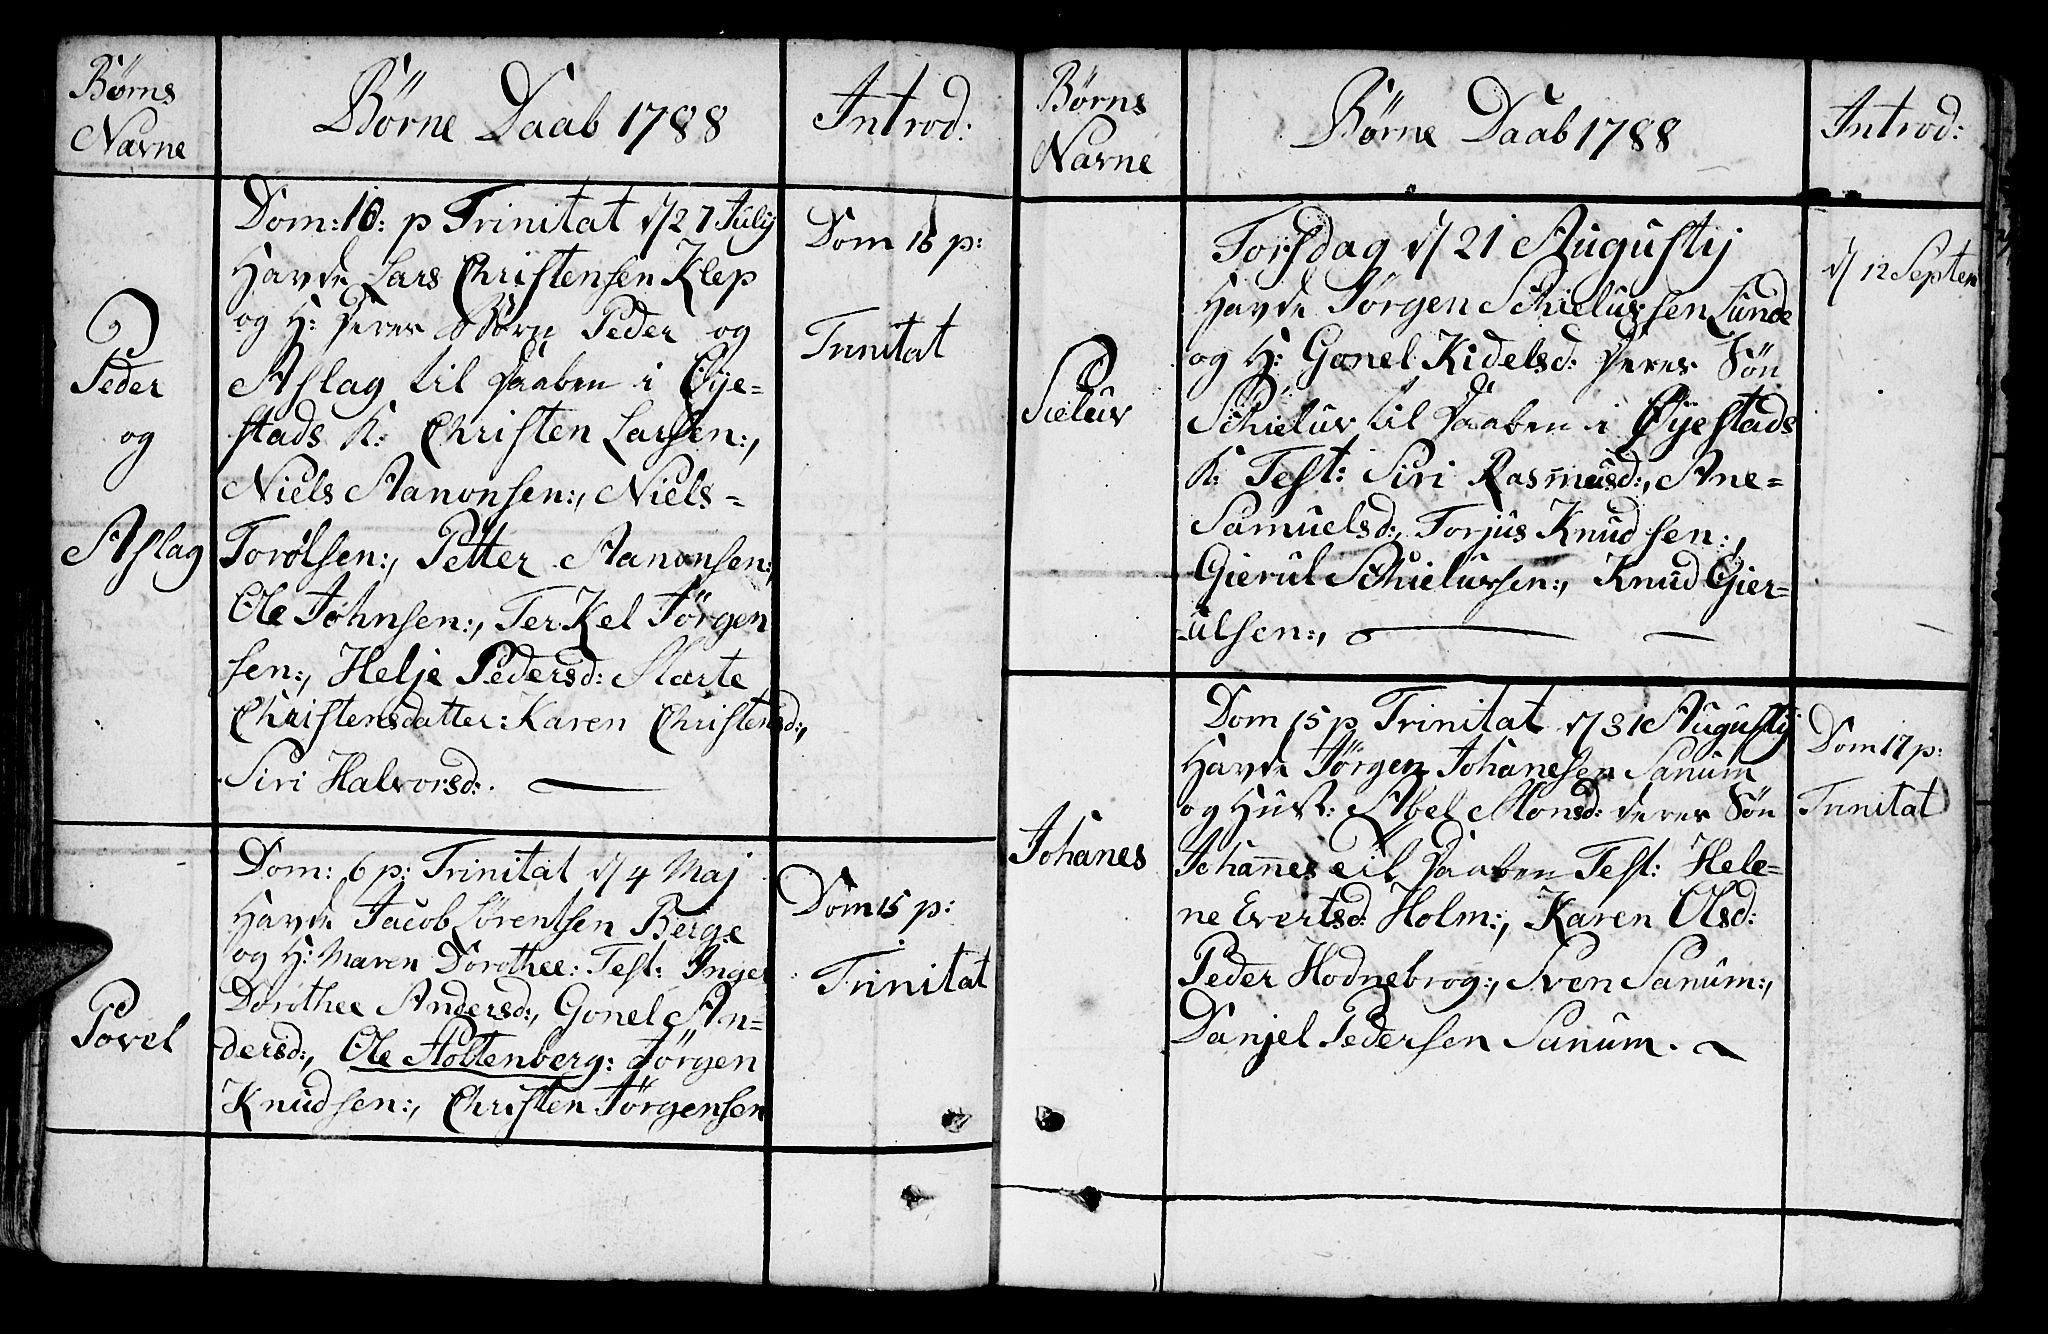 Børns
Navne
Børne Daab 1788
Introd:
Peder
og
Aslag
Dom: 10: p Trinitat d/27 July
Havde Lars Christensen Klep
og H: deres Børn Peder og
Aslag til Daaben i Øye=
stads K: Christen Larsen:,
Niels Aanonsen:, Niels=
Torolsen:, Petter Aanonsen:,
Ole Johnsen:, TerKel Jørgen
sen:, Helje Pedersd: Marte
Christensdatter: Karen Christensd:,
Siri Halvorsd:.
Dom 16 p:
Trinitat
Povel
Dom: 6 p: Trinitat d/4 Maj
Havde Jacob Sørentsen Berge
og H: Maren Dorothee: Test: Inger
Dorothee Andersd:, Gonel An=
dersd:, Ole Holtenberg: Jørgen
Knudsen:, Christen Jørgensen
Dom 15 p:
Trinitat
Børns
Navne
Børne Daab 1788
Introd:
Sielur
Torsdag d/21 Augustij
Havde Jørgen Schielursen Lunde
og H: Gonel Kidelsd: deres Søn
Schielur til Daaben i Øyestads
K: Test: Siri Rasmusd:, Ane=
Samuelsd:, Torjus Knudsen:,
Gierul Schielursen:, Knud Gier=
=ulsen:,
d/12 Septem
Johanes
Dom 15 p Trinitat d/31 Augustij
Havde Jørgen Johanesen Sanum
og Hust: Abel Monsd: deres Søn
Johannes til Daaben Test: Hele=
ne Evertsd: Holm:, Karen Olsd:
Peder Hodnebrog:, Sven Sanum:,
Danjel Pedersen Sanum.
Dom 17 p:
Trinitat